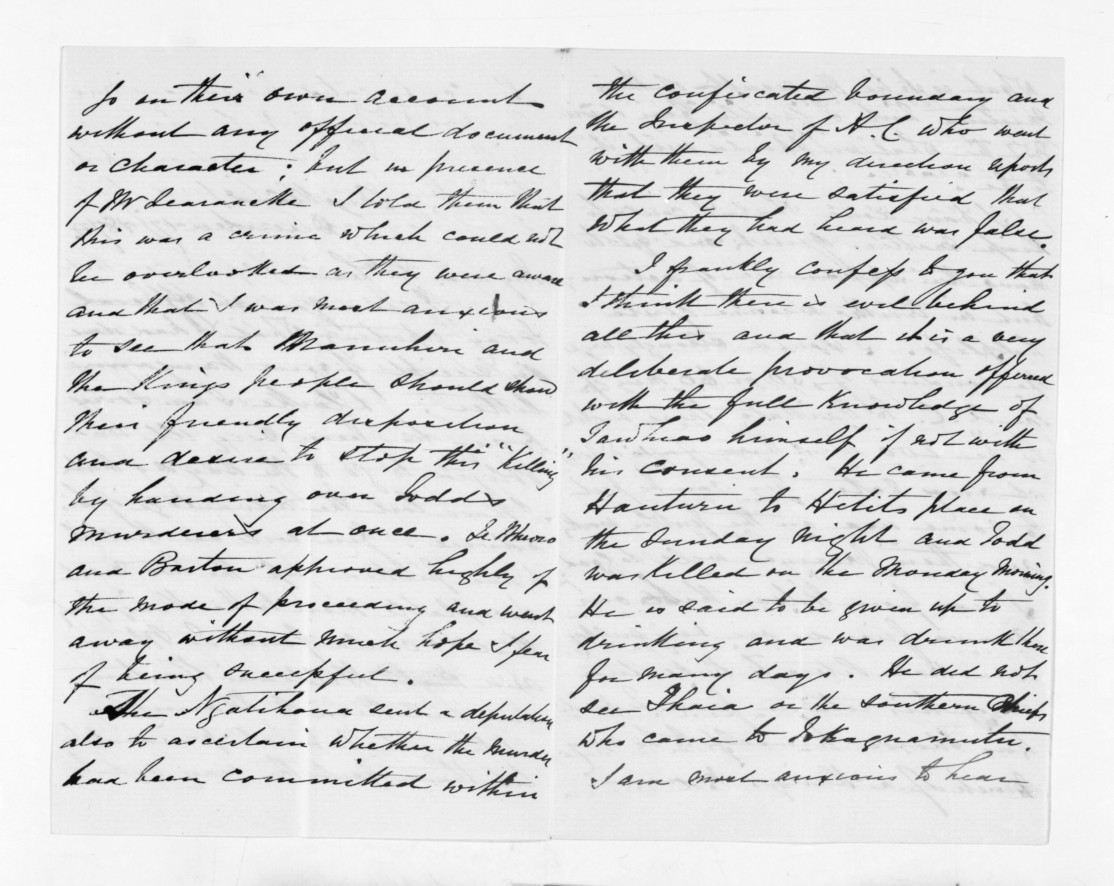 go on their own account
without any official document
or character; but in presence
of Mr Searancke I told them that
this was a crime which could not
be overlooked as they were aware
and that I was most anxious
to see that Manuhiri and
the Kings people should show
their friendly disposition
and desire to stop this "Killing"
by handing over Todd's
murderers at once. Te Wheoro
and Barton approved highly of
the mode of proceeding and went
away without much hope I fear
of being successful.
The Ngatihaua sent a deputation
also to ascertain whether the murder
had been committed within
the confiscated boundary and
the Inspector of A.C who went
with them by my direction reports
that they were satisfied that
what they had heard was false.
I frankly confess to you that
I think there is evil behind
all this and that it is a very
deliberate provocation offered
with the full knowledge of
Tawhiao himself if not with
his consent. He came from
Hauturu to Hetits place on
the Sunday night and Todd
was killed on the Monday morning.
He is said to be given up to
drinking and was drunk there
for many days. He did not
see Ihaia or the southern Chiefs
who came to Tokagnamutu.
I am most anxious to hear